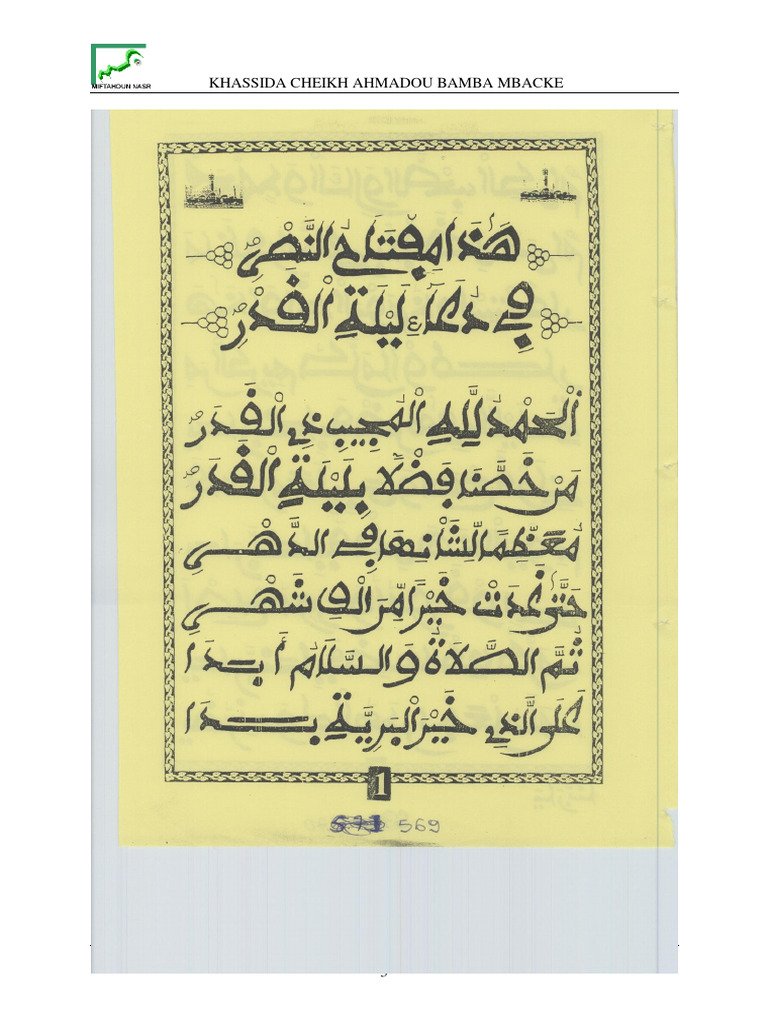 MIFTAHOUN NASR
KHASSIDA CHEIKH AHMADOU BAMBA MBACKE
هَذَا مِفْتَاحُ النَّصْرِ
فِي دُعَاءِ لَيْلَةِ الْقَدْرِ
اَلْحَمْدُ لِلَّهِ الْمُجِيبِ ذِي الْقَدَرْ
مَنْ خَصَّنَا فَضْلًا بِلَيْلَةِ الْقَدَرْ
مُعَظِّمًا لِشَأْنِهَا فِي الدَّهْرِ
حَتَّى غَدَتْ خَيْرًا مِنَ الْفِ شَهْرِ
ثُمَّ الصَّلَاةُ وَالسَّلَامُ أَبَدَا
عَلَى الَّذِي خَيْرَ الْبَرِيَّةِ بَدَا
1
569